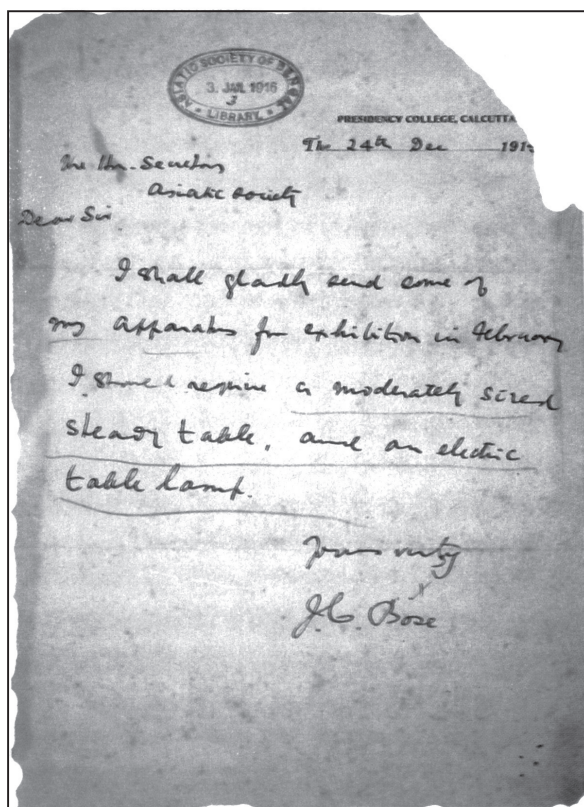 ASIATIC SOCIETY OF BENGAL
3. JAN. 1916
3
LIBRARY.
PRESIDENCY COLLEGE, CALCUTTA
The 24th Dec 191
The Hon. Secretary
Asiatic Society
Dear Sir
I shall gladly send some of
my apparatus for exhibition in February
I should require a moderately sized
steady table, and an electric
table lamp.
Yours
J.C. Bose